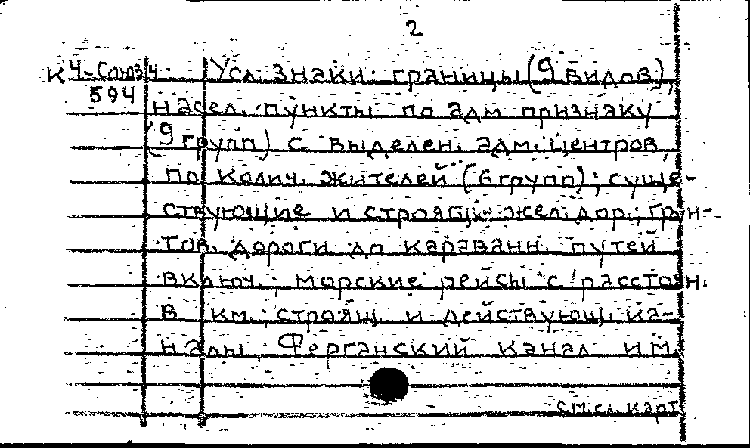 2
К 4-Союз/4 Усл. знаки: границы (9 видов),
594 насел. пункты по адм признаку
(9 групп) с выделен. адм. центров,
по колич. жителей (6 групп); суще-
ствующие и строящ. жел. дор.; грун-
тов. дороги до караванн. путей
включ.; морские рейсы с расстоян.
в км.; строящ. и действующ. ка-
налы, Ферганский канал им.
см. сл. карт